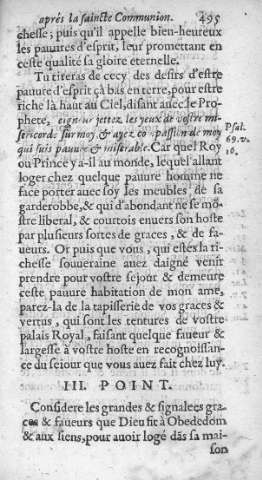 après la saincte Communion. 495
chesse; puis qu'il appelle bien-heureux
les pauures d'esprit, leur promettant en
ceste qualité sa gloire eternelle.
Tu tireras de cecy des desirs d'estre
pauure d'esprit çà bas en terre, pour estre
riche là haut au Ciel, disant auec le Pro-
phete, eigneur jettez les yeux de vostre mi-
sericord. sur moy, & ayez co passion de moy
qui suis pauure & miserable. Car quel Roy
Psal.
69. v.
16.
ou Prince y a-il au monde, lequel allant
loger chez quelque pauure homme ne
face porter auec soy les meubles de sa
garderobbe, & qui d'abondant ne se mõ-
stre liberal, & courtois enuers son hoste
par plusieurs sortes de graces, & de fa-
ueurs. Or puis que vous, qui estes la ri-
chesse souueraine auez daigné venir
prendre pour vostre sejour & demeure
ceste pauure habitation de mon ame,
parez-la de la tapisserie de vos graces &
vertus, qui sont les tentures de vostre
palais Royal, faisant quelque faueur &
largesse à vostre hoste en recognoissan-
ce du sejour que vous auez fait chez luy.
III. POINT.
Considere les grandes & signalees gra-
ces & faueurs que Dieu fit à Obededom
& aux siens, pour auoir logé dãs sa mai-
son